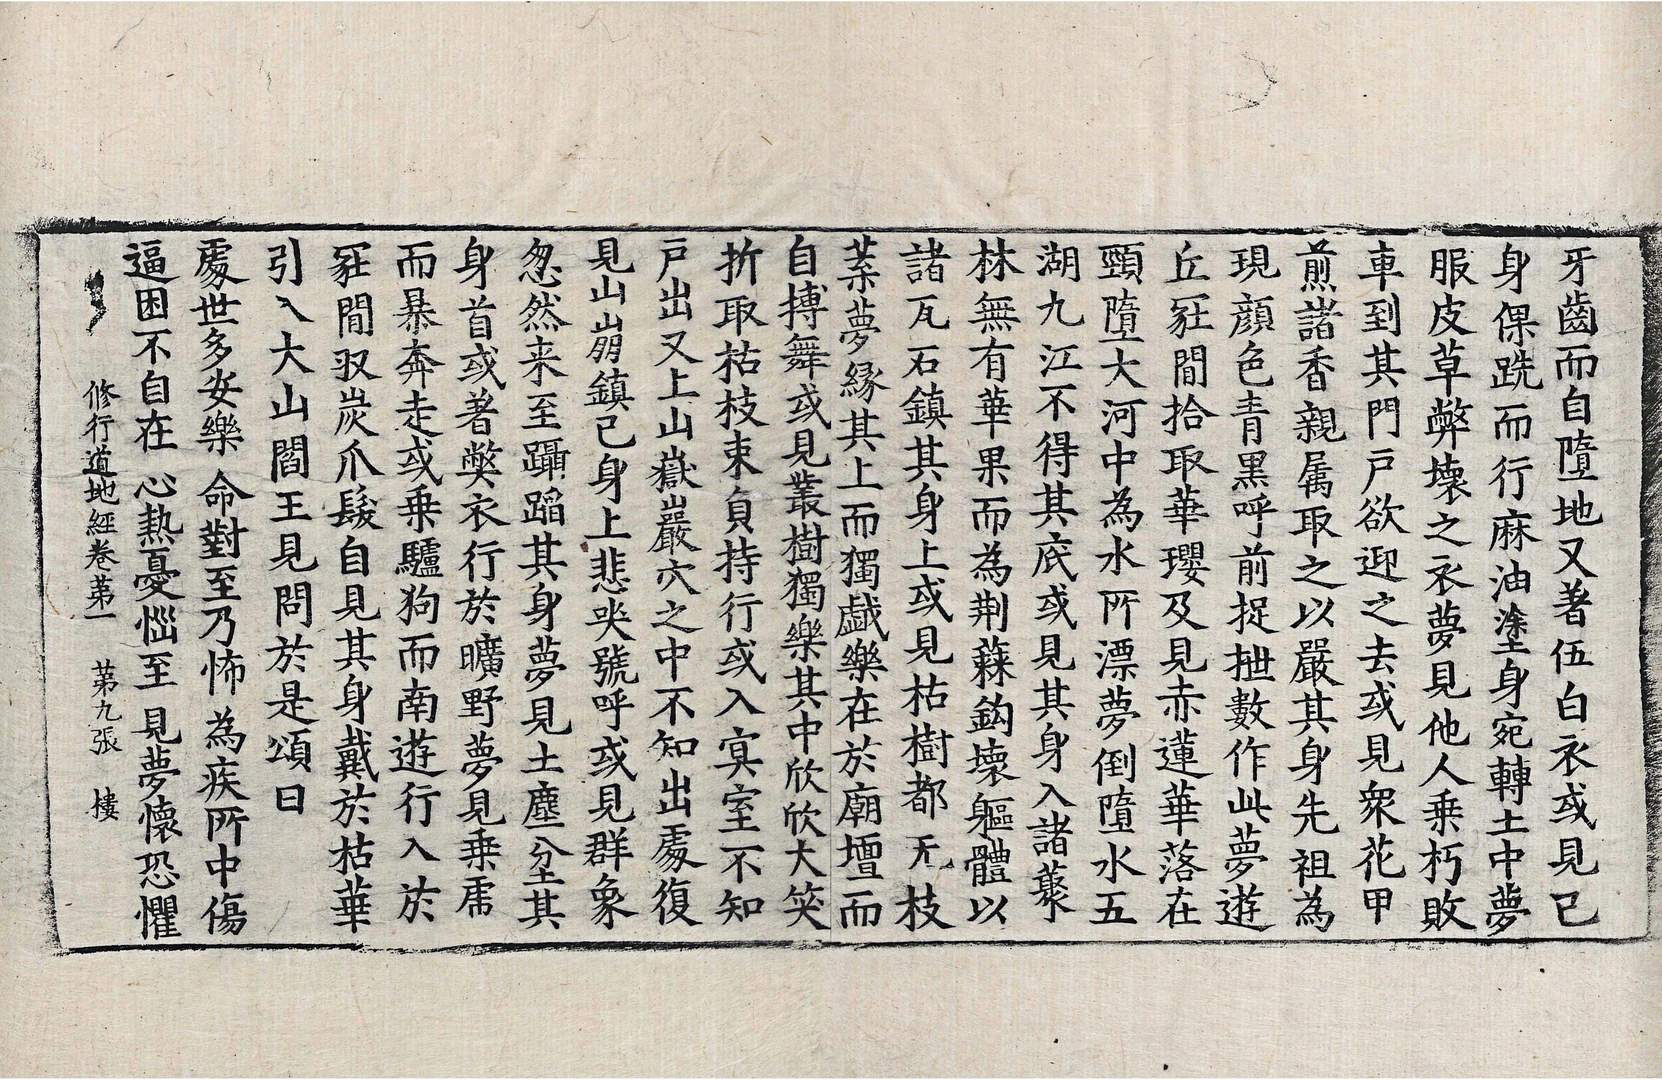 牙齒而自墮地又著伍白衣或見已
身倮跣而行麻油塗身宛轉土中夢
服皮草弊壞之衣夢見他人乘朽敗
車到其門戶欲迎之去或見衆花甲
煎諸香親属取之以嚴其身先祖為
現顔色青黑呼前捉抴數作此夢遊
丘冢間拾取華瓔及見赤蓮華落在
頸墮大河中為水所漂夢倒墮水五
湖九江不得其底或見其身入諸藂
林無有華果而為荆蕀鈎壞軀體以
諸瓦石鎮其身上或見枯樹都无枝
葉夢緣其上而獨戱樂在於廟壇而
自搏舞或見叢樹獨樂其中欣欣大笑
折取枯枝束負持行或入冥室不知
戶出又上山嶽巖穴之中不知出處復
見山崩鎮已身上悲哭號呼或見群象
忽然来至躡蹈其身夢見土塵坌其
身首或著弊衣行於曠野夢見乘虎
而暴奔走或乘驢狗而南遊行入於
冢間収炭爪髮自見其身戴於枯華
引入大山閻王見問於是頌曰
處世多安樂 命對至乃怖 為疾所中傷
逼困不自在 心熱憂惱至 見夢懷恐懼
修行道地經卷苐一 苐九張 樓